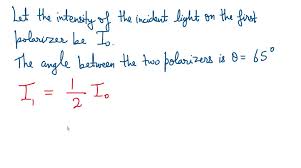 Let the intensity of the incident light on the first
polarizer be I₀.
The angle between the two polarizers is θ = 65°
I₁ = 1/2 I₀